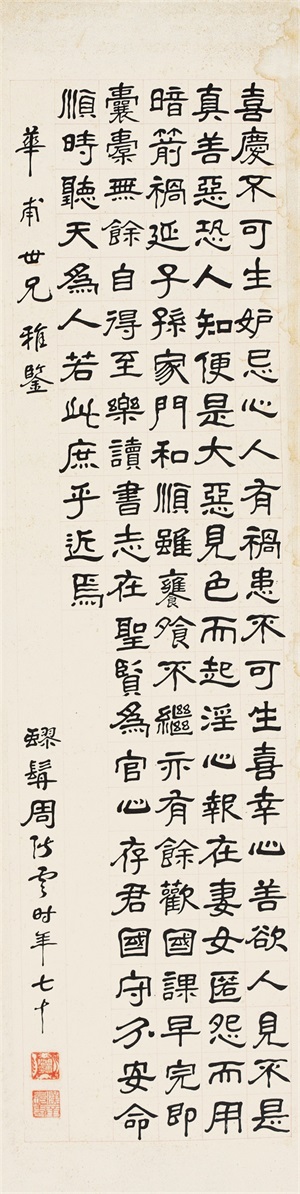 喜慶不可生妒忌心人有禍患不可生喜幸心善欲人見不是
真善惡恐人知便是大惡見色而起淫心報在妻女匿怨而用
暗箭禍延子孫家門和順雖饔飧不繼亦有餘歡國課早完即
囊橐無餘自得至樂讀書志在聖賢爲官心存君國守分安命
順時聽天爲人若此庶乎近焉
華甫世兄雅鑒
髯周雲时年七十